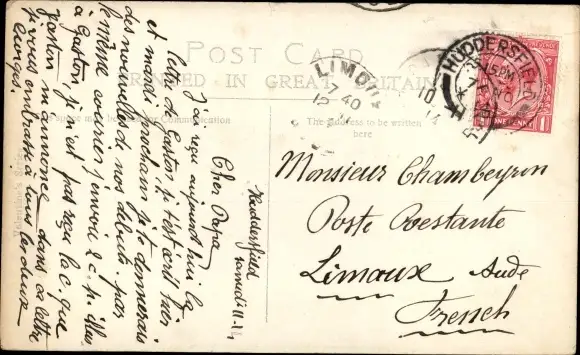 POST CARD
PRINTED IN GREAT BRITAIN
may be used for Communication
The Address to be written
here
HUDDERSFIELD
15 PM
LIMOUX
7 40
10
14
ONE PENNY
Huddersfield
Samedi
Cher Papa
J'ai reçu aujourd'hui la
lettre de Gaston, j'y
et mardi prochain je te donnerais
des nouvelles de nos débuts. par
le même courrier j'envoie 2 c. p. illus
à Gaston, je n'ai pas reçu la c. que
Gaston m'annonce dans sa lettre
je vous embrasse tous les deux
Georges.
Monsieur Chambeyron
Poste Restante
Limoux Aude
French